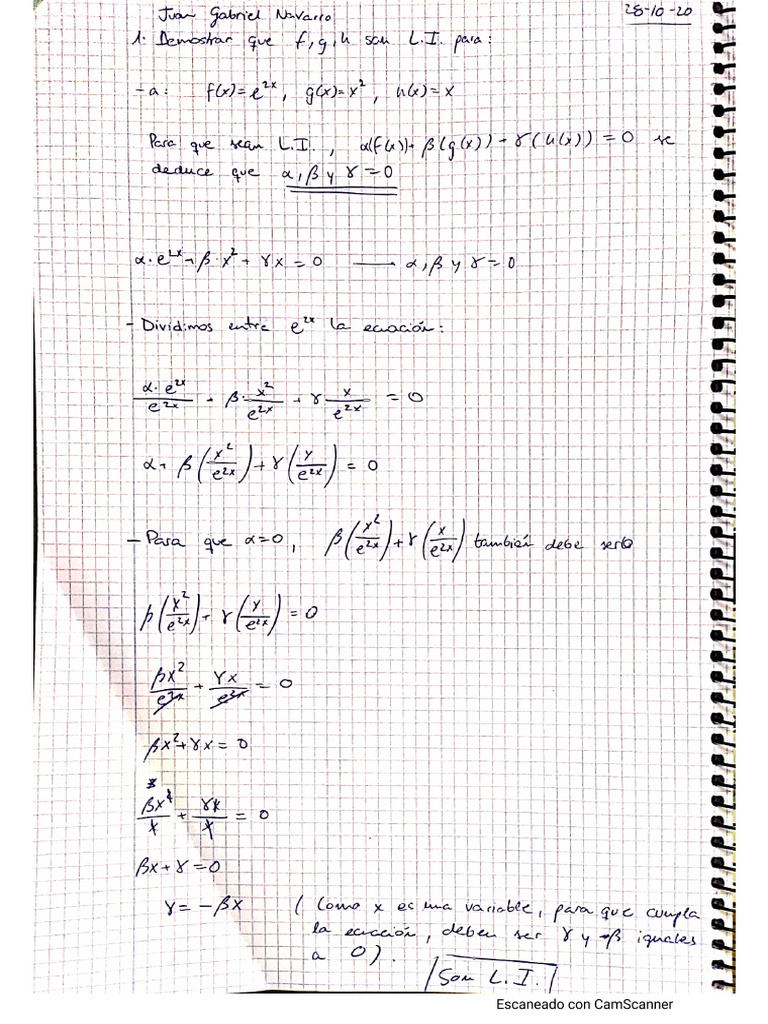 Juan Gabriel Navarro
28-10-20
1. Demostrar que f, g, h son L.I. para:
- a: f(x)=e^2x, g(x)=x^2, h(x)=x
Para que sean L.I., α(f(x))+β(g(x))+γ(h(x))=0 se
deduce que α, β y γ=0
α·e^2x+β·x^2+γx=0 → α, β y γ=0
- Dividimos entre e^2x la ecuación:
α·e^2x/e^2x + β·x^2/e^2x + γ x/e^2x = 0
α+β(x^2/e^2x)+γ(x/e^2x)=0
- Para que α=0, β(x^2/e^2x)+γ(x/e^2x) también debe serlo
β(x^2/e^2x)+γ(x/e^2x)=0
βx^2/e^2x + γx/e^2x = 0
βx^2+γx=0
βx^2/x + γx/x = 0
βx+γ=0
γ=-βx (Como x es una variable, para que cumpla
la ecuación, deben ser γ y -β iguales
a 0).
Son L.I.
Escaneado con CamScanner